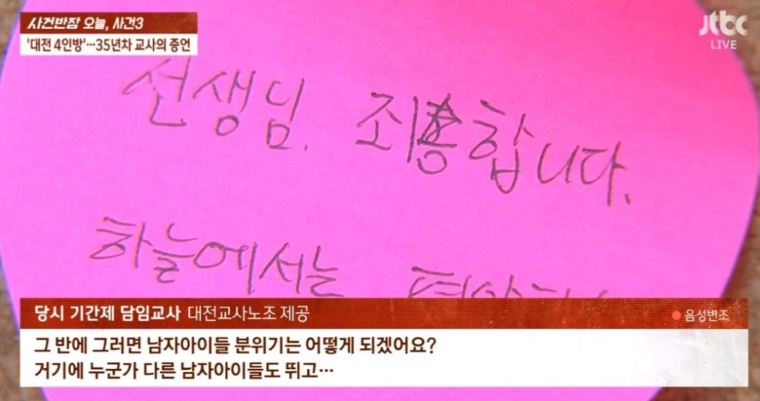 사건반장 오늘, 사건3
jtbc
'대전 4인방'…35년차 교사의 증언
LIVE
선생님. 죄송합니다.
하늘에서는
당시 기간제 담임교사 대전교사노조 제공
음성변조
그 반에 그러면 남자아이들 분위기는 어떻게 되겠어요?
거기에 누군가 다른 남자아이들도 뛰고…